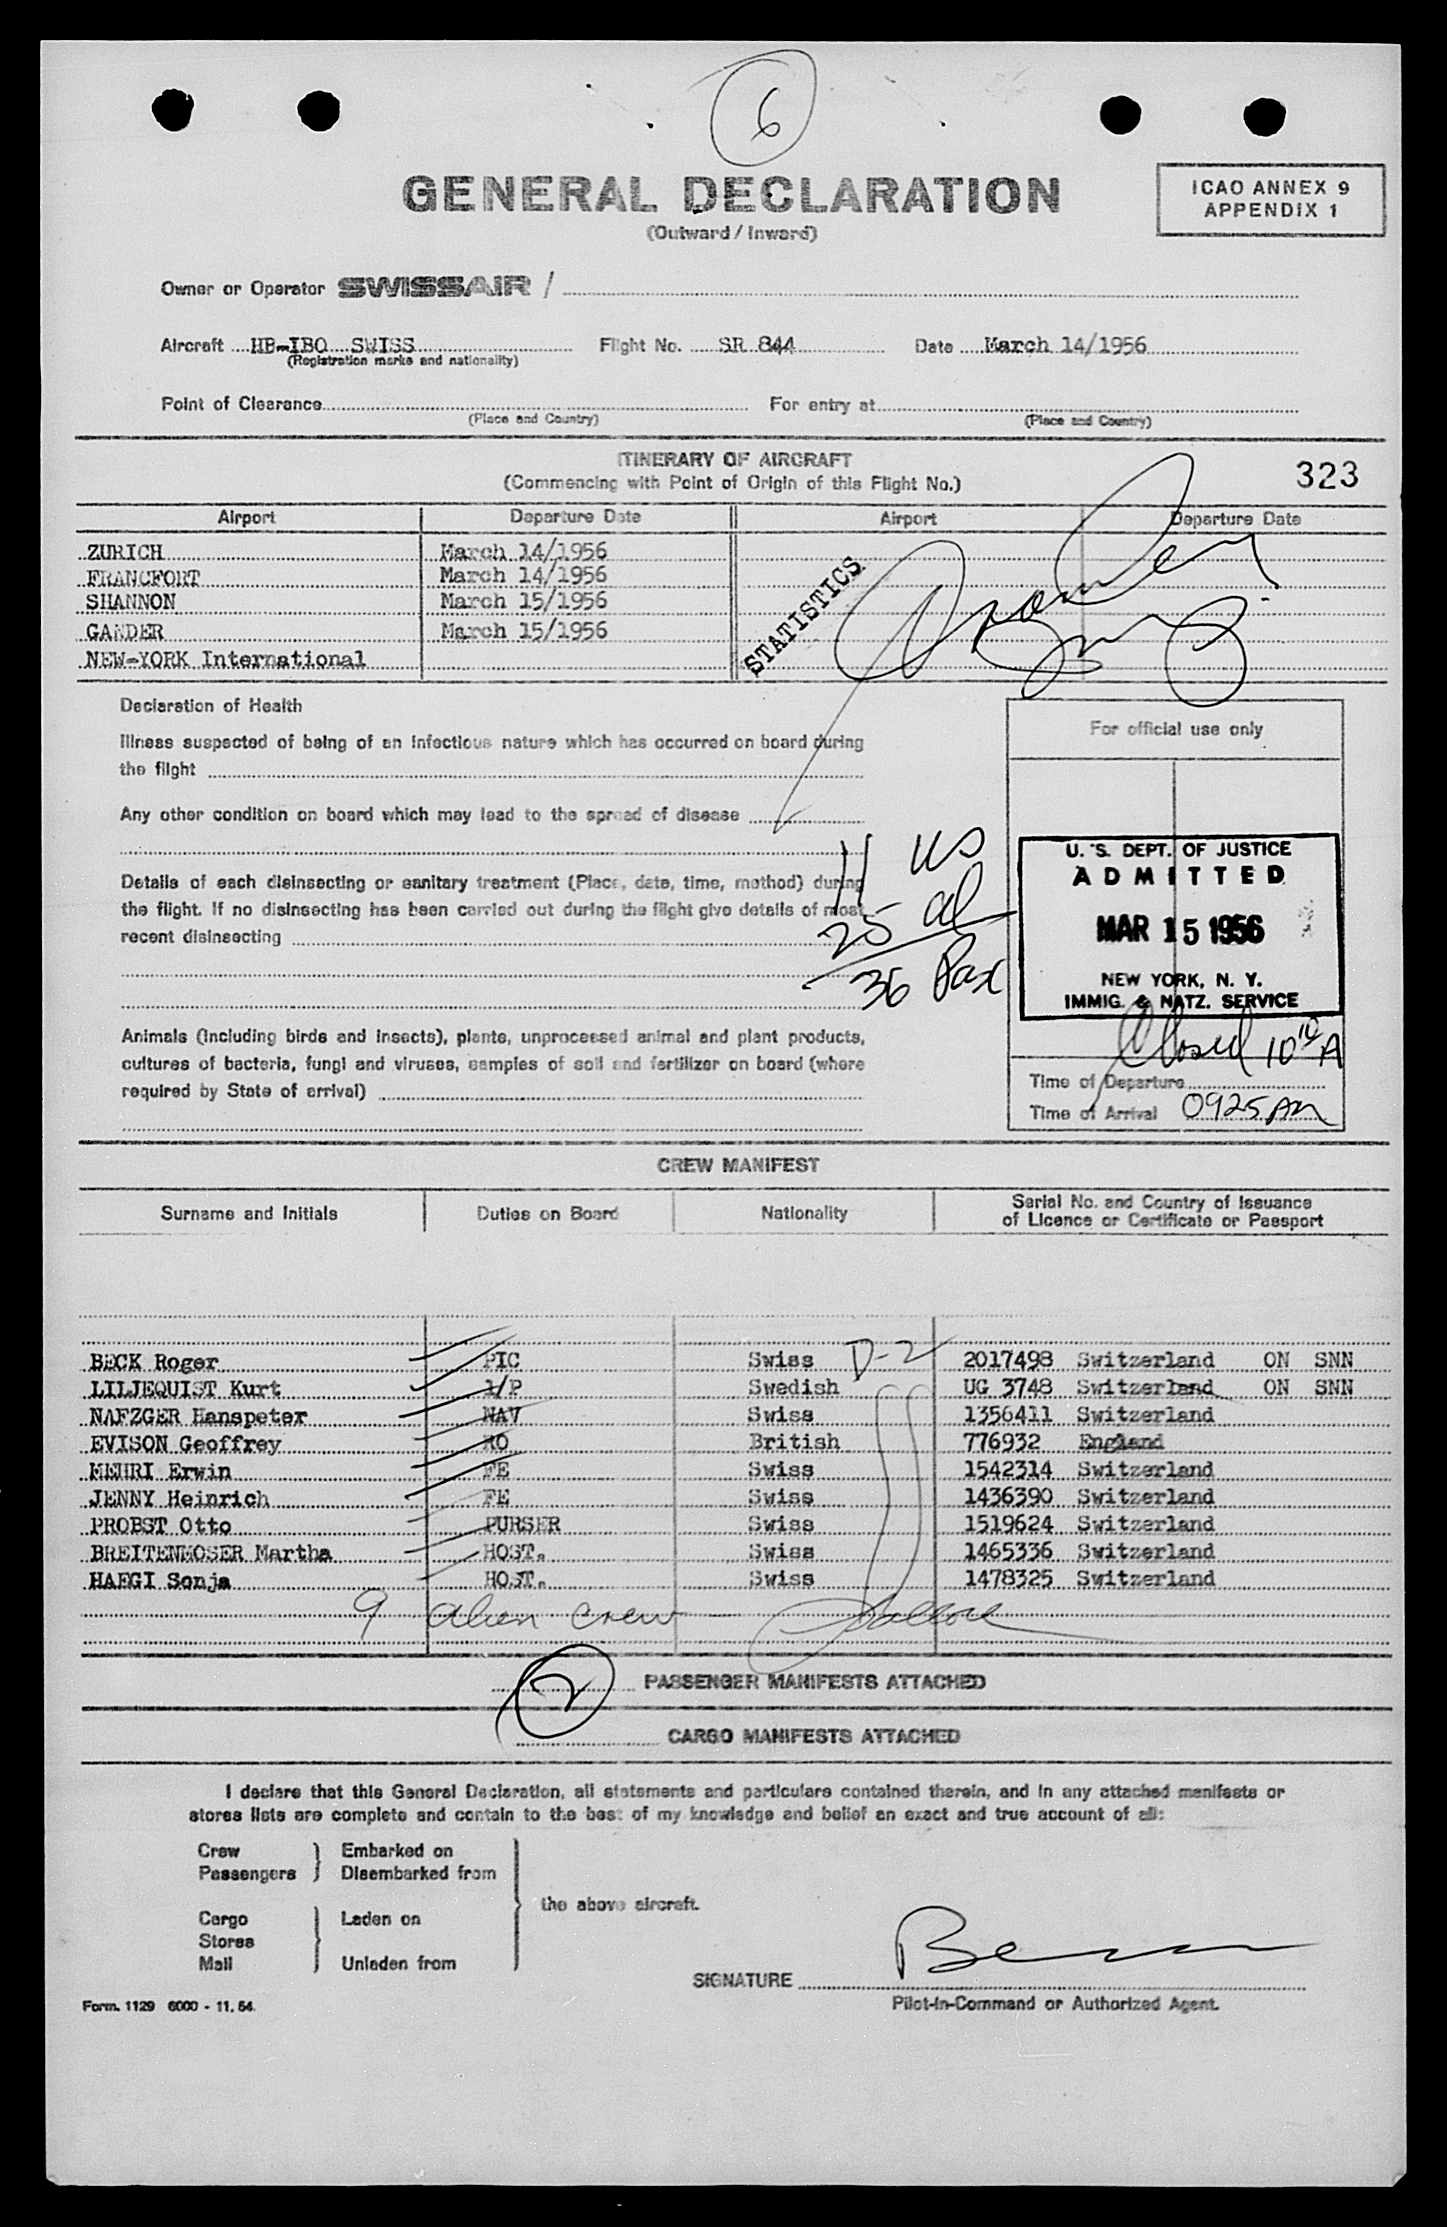 6
GENERAL DECLARATION
(Outward / Inward)
ICAO ANNEX 9
APPENDIX 1
Owner or Operator SWISSAIR /
Aircraft HB-IBO SWISS Flight No. SR 844 Date March 14/1956
(Registration marks and nationality)
Point of Clearance For entry at
(Place and Country) (Place and Country)
ITINERARY OF AIRCRAFT
(Commencing with Point of Origin of this Flight No.)
323
Airport Departure Date Airport Departure Date
ZURICH March 14/1956
FRANCFORT March 14/1956
SHANNON March 15/1956
GANDER March 15/1956
NEW-YORK International
STATISTICS
Declaration of Health
Illness suspected of being of an infectious nature which has occurred on board during
the flight
Any other condition on board which may lead to the spread of disease
Details of each disinsecting or sanitary treatment (Place, date, time, method) during
the flight. If no disinsecting has been carried out during the flight give details of most
recent disinsecting
11 US
25 al
36 Pax
Animals (including birds and insects), plants, unprocessed animal and plant products,
cultures of bacteria, fungi and viruses, samples of soil and fertilizer on board (where
required by State of arrival)
For official use only
U. S. DEPT. OF JUSTICE
ADMITTED
MAR 15 1956
NEW YORK, N. Y.
IMMIG. & NATZ. SERVICE
Closed 10 10 A
Time of Departure
Time of Arrival 0925 AM
CREW MANIFEST
Surname and Initials Duties on Board Nationality Serial No. and Country of Issuance
of Licence or Certificate or Passport
D-2
BECK Roger PIC Swiss 2017498 Switzerland ON SNN
LILJEQUIST Kurt 1/P Swedish UG 3748 Switzerland ON SNN
NAFZGER Hanspeter NAV Swiss 1356411 Switzerland
EVISON Geoffrey RO British 776932 England
MEHRI Erwin FE Swiss 1542314 Switzerland
JENNY Heinrich FE Swiss 1436390 Switzerland
PROBST Otto PURSER Swiss 1519624 Switzerland
BREITENMOSER Martha HOST. Swiss 1465336 Switzerland
HAEGI Sonja HOST. Swiss 1478325 Switzerland
9 alien crew
2 PASSENGER MANIFESTS ATTACHED
CARGO MANIFESTS ATTACHED
I declare that this General Declaration, all statements and particulars contained therein, and in any attached manifests or
stores lists are complete and contain to the best of my knowledge and belief an exact and true account of all:
Crew Embarked on
Passengers Disembarked from
the above aircraft.
Cargo Laden on
Stores
Mail Unladen from
SIGNATURE
Pilot-in-Command or Authorized Agent.
Form. 1129 6000 - 11. 54.